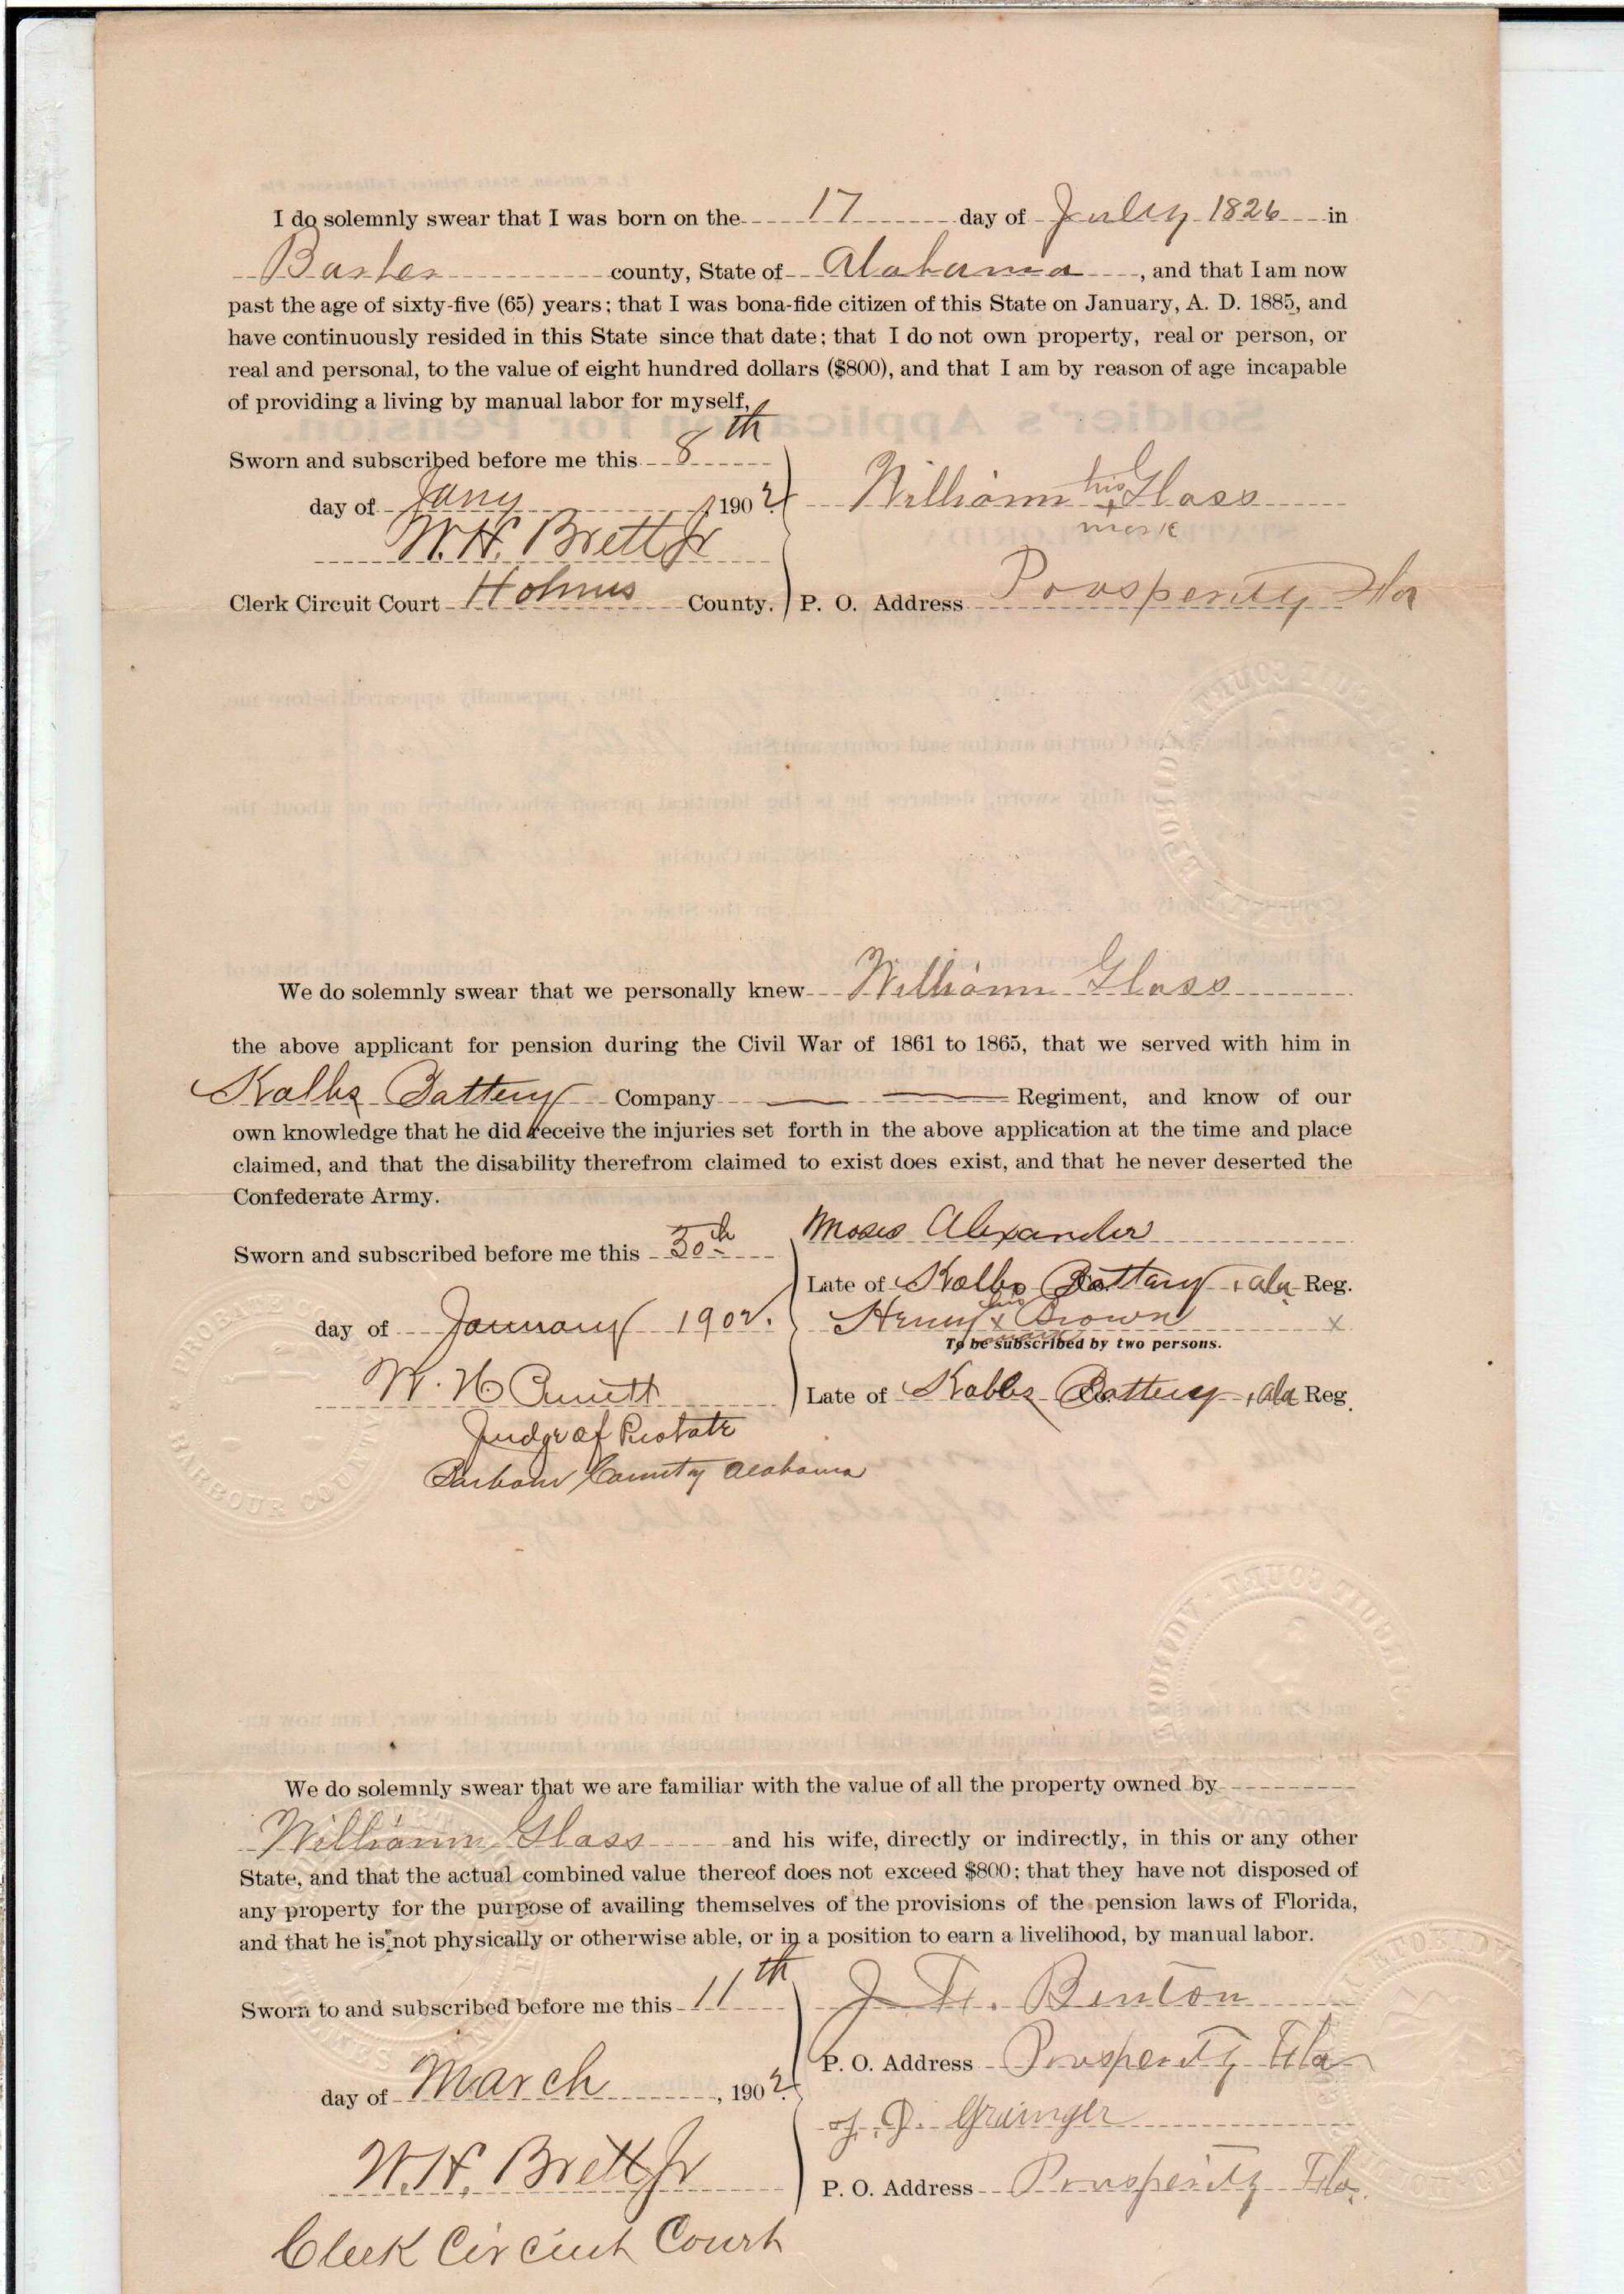 I do solemnly swear that I was born on the 17 day of July 1826 in
county, State of Alabama, and that I am now
past the age of sixty-five (65) years; that I was bona-fide citizen of this State on January, A. D. 1885, and
have continuously resided in this State since that date; that I do not own property, real or person, or
real and personal, to the value of eight hundred dollars ($800), and that I am by reason of age incapable
of providing a living by manual labor for myself,
Sworn and subscribed before me this 8th
day of Jany 1902 William his Glass
+
mark
W. H. Brett Jr
Clerk Circuit Court Holmes County. P. O. Address Prosperity Fla
We do solemnly swear that we personally knew William Glass
the above applicant for pension during the Civil War of 1861 to 1865, that we served with him in
Kolbs Battery Company Regiment, and know of our
own knowledge that he did receive the injuries set forth in the above application at the time and place
claimed, and that the disability therefrom claimed to exist does exist, and that he never deserted the
Confederate Army.
Moses Alexander
Sworn and subscribed before me this 30th
Late of Kolbs Battery, Ala Reg.
day of January 1902. Henry his x mark Brown x
To be subscribed by two persons.
W. H.
Late of Kolbs Battery, Ala Reg.
Judge of Probate
Barbour County Alabama
PROBATE COURT
BARBOUR COUNTY
We do solemnly swear that we are familiar with the value of all the property owned by
William Glass and his wife, directly or indirectly, in this or any other
State, and that the actual combined value thereof does not exceed $800; that they have not disposed of
any property for the purpose of availing themselves of the provisions of the pension laws of Florida,
and that he is not physically or otherwise able, or in a position to earn a livelihood, by manual labor.
Sworn to and subscribed before me this 11th Benton
P. O. Address Prosperity Fla
day of March, 1902
J. J. Grainger
W. H. Brett Jr
P. O. Address Prosperity Fla.
Clerk Circuit Court